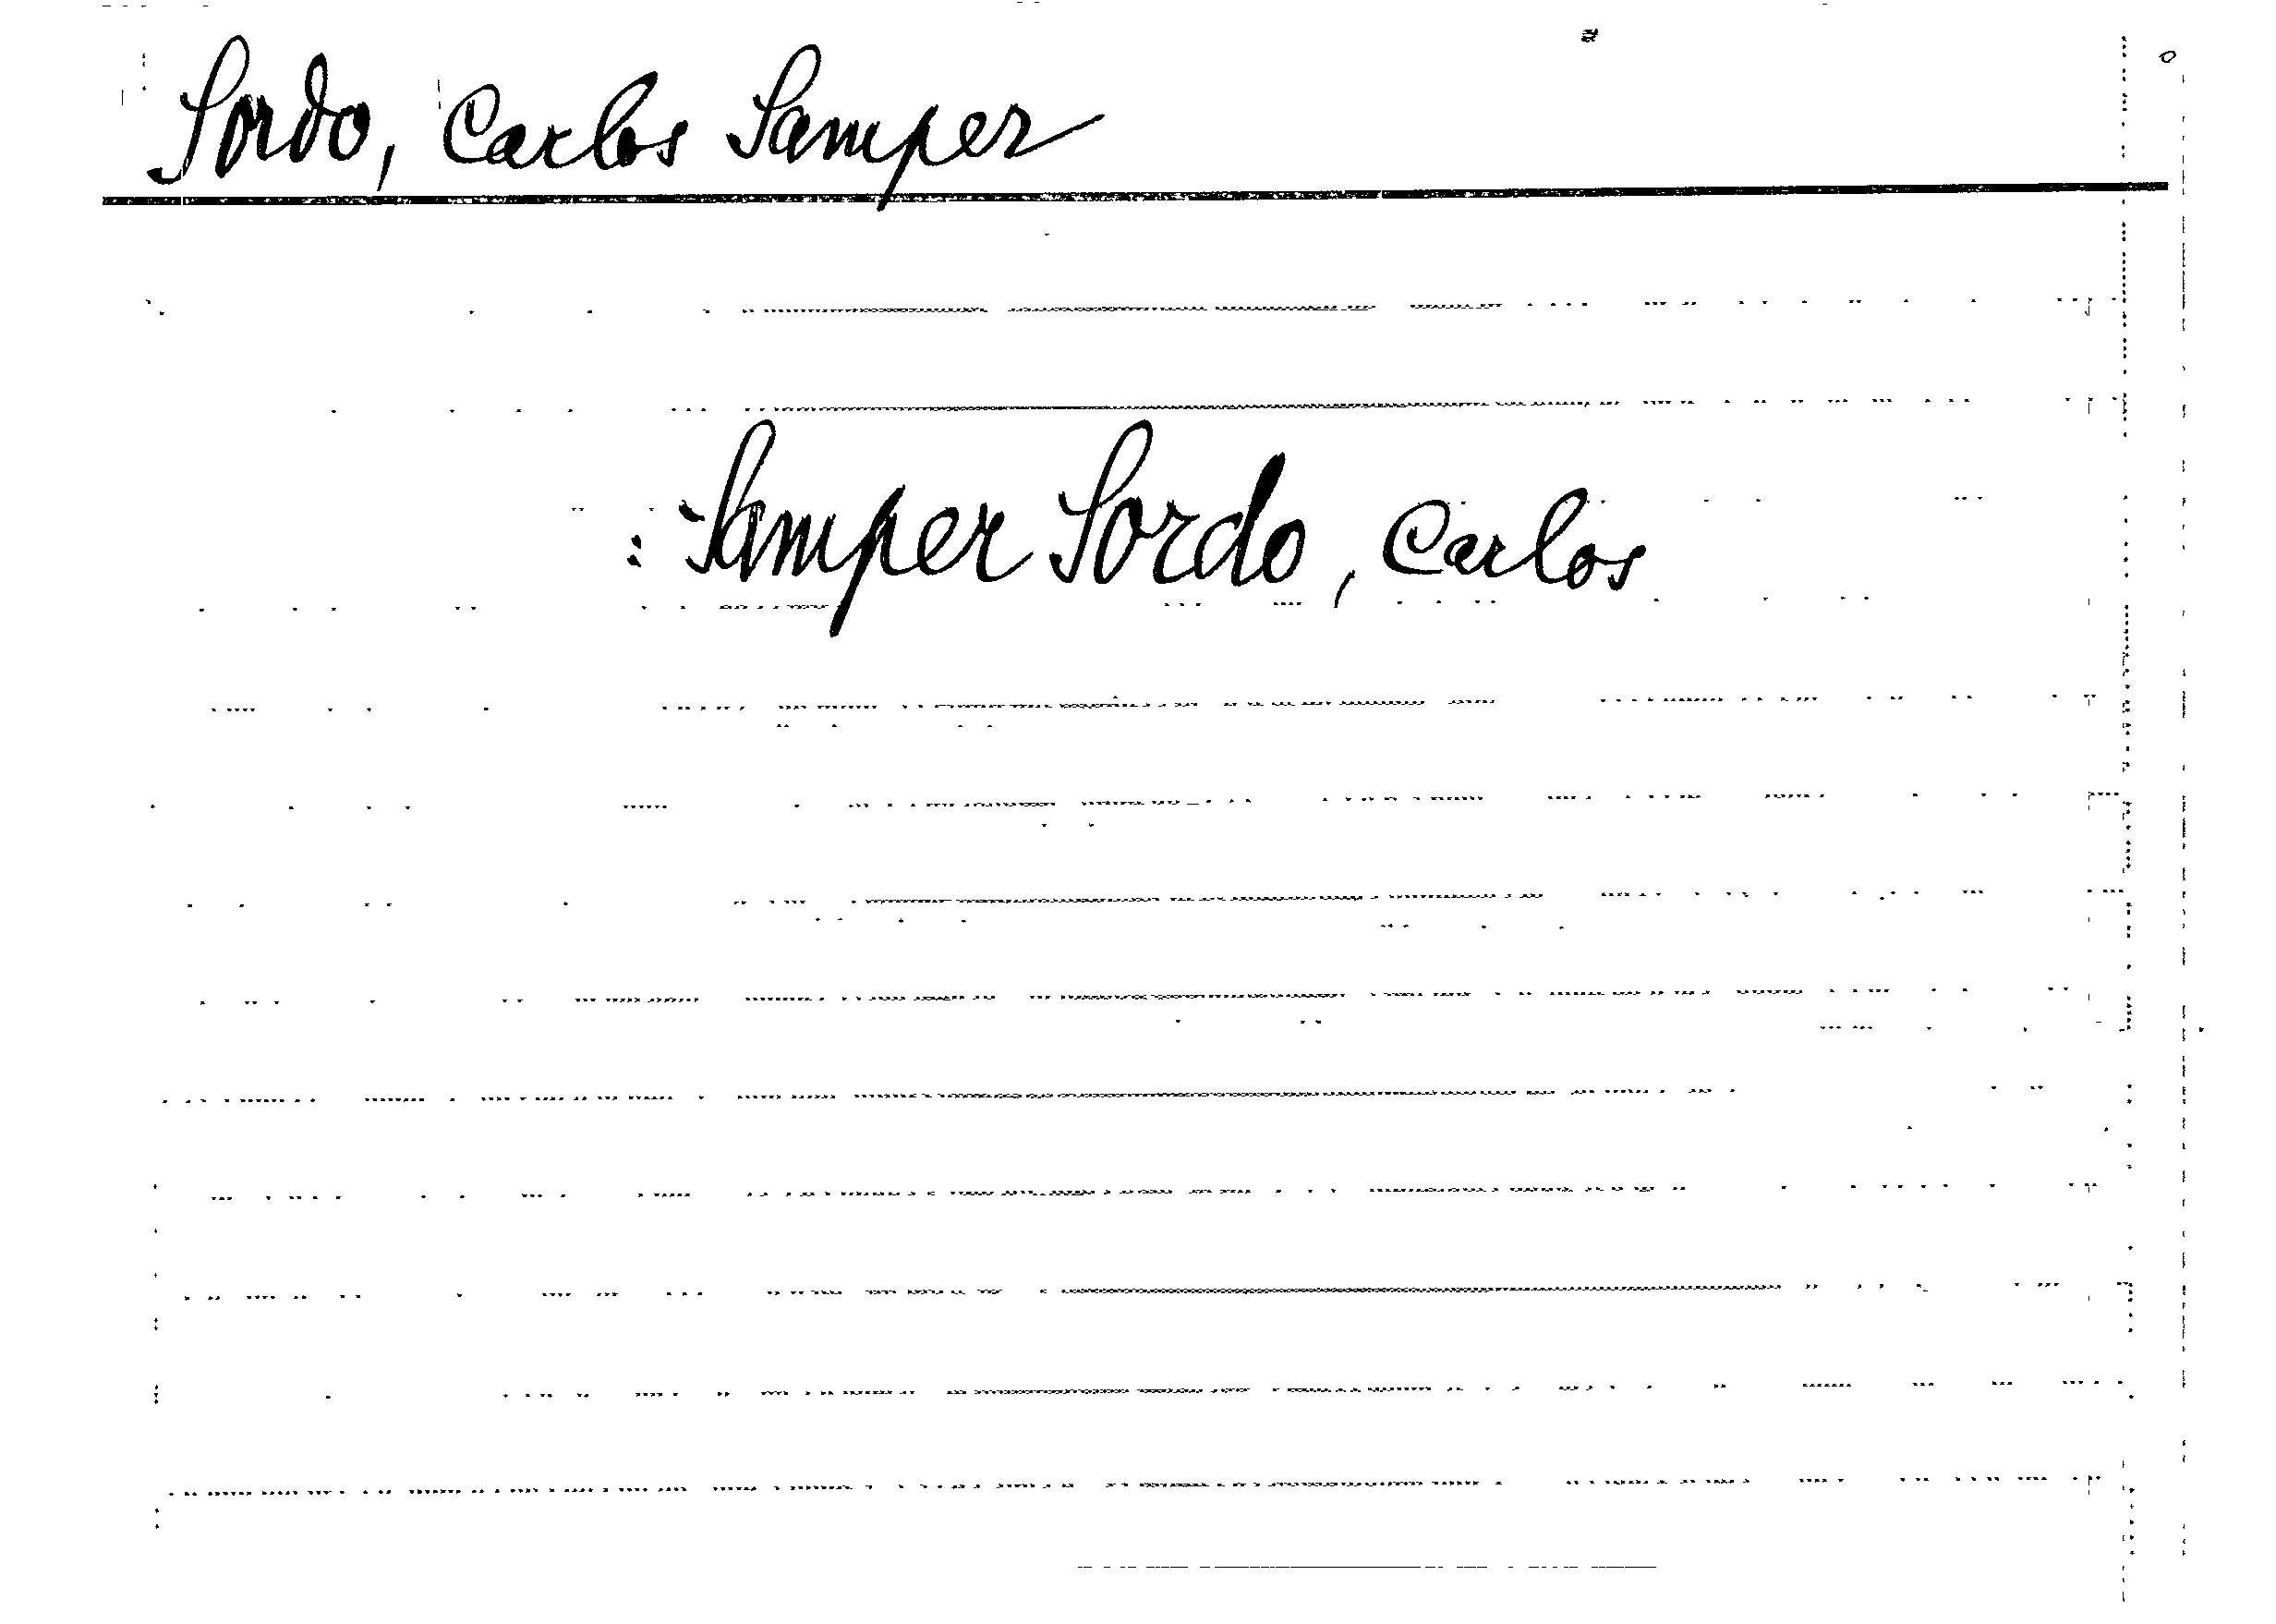 Sordo, Carlos Samper
: Samper Sordo, Carlos